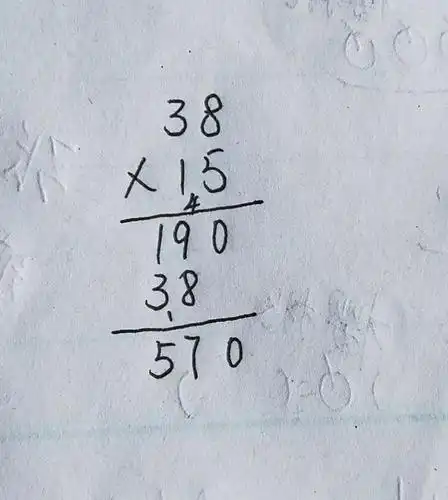 38
×15
4
190
38
1
570